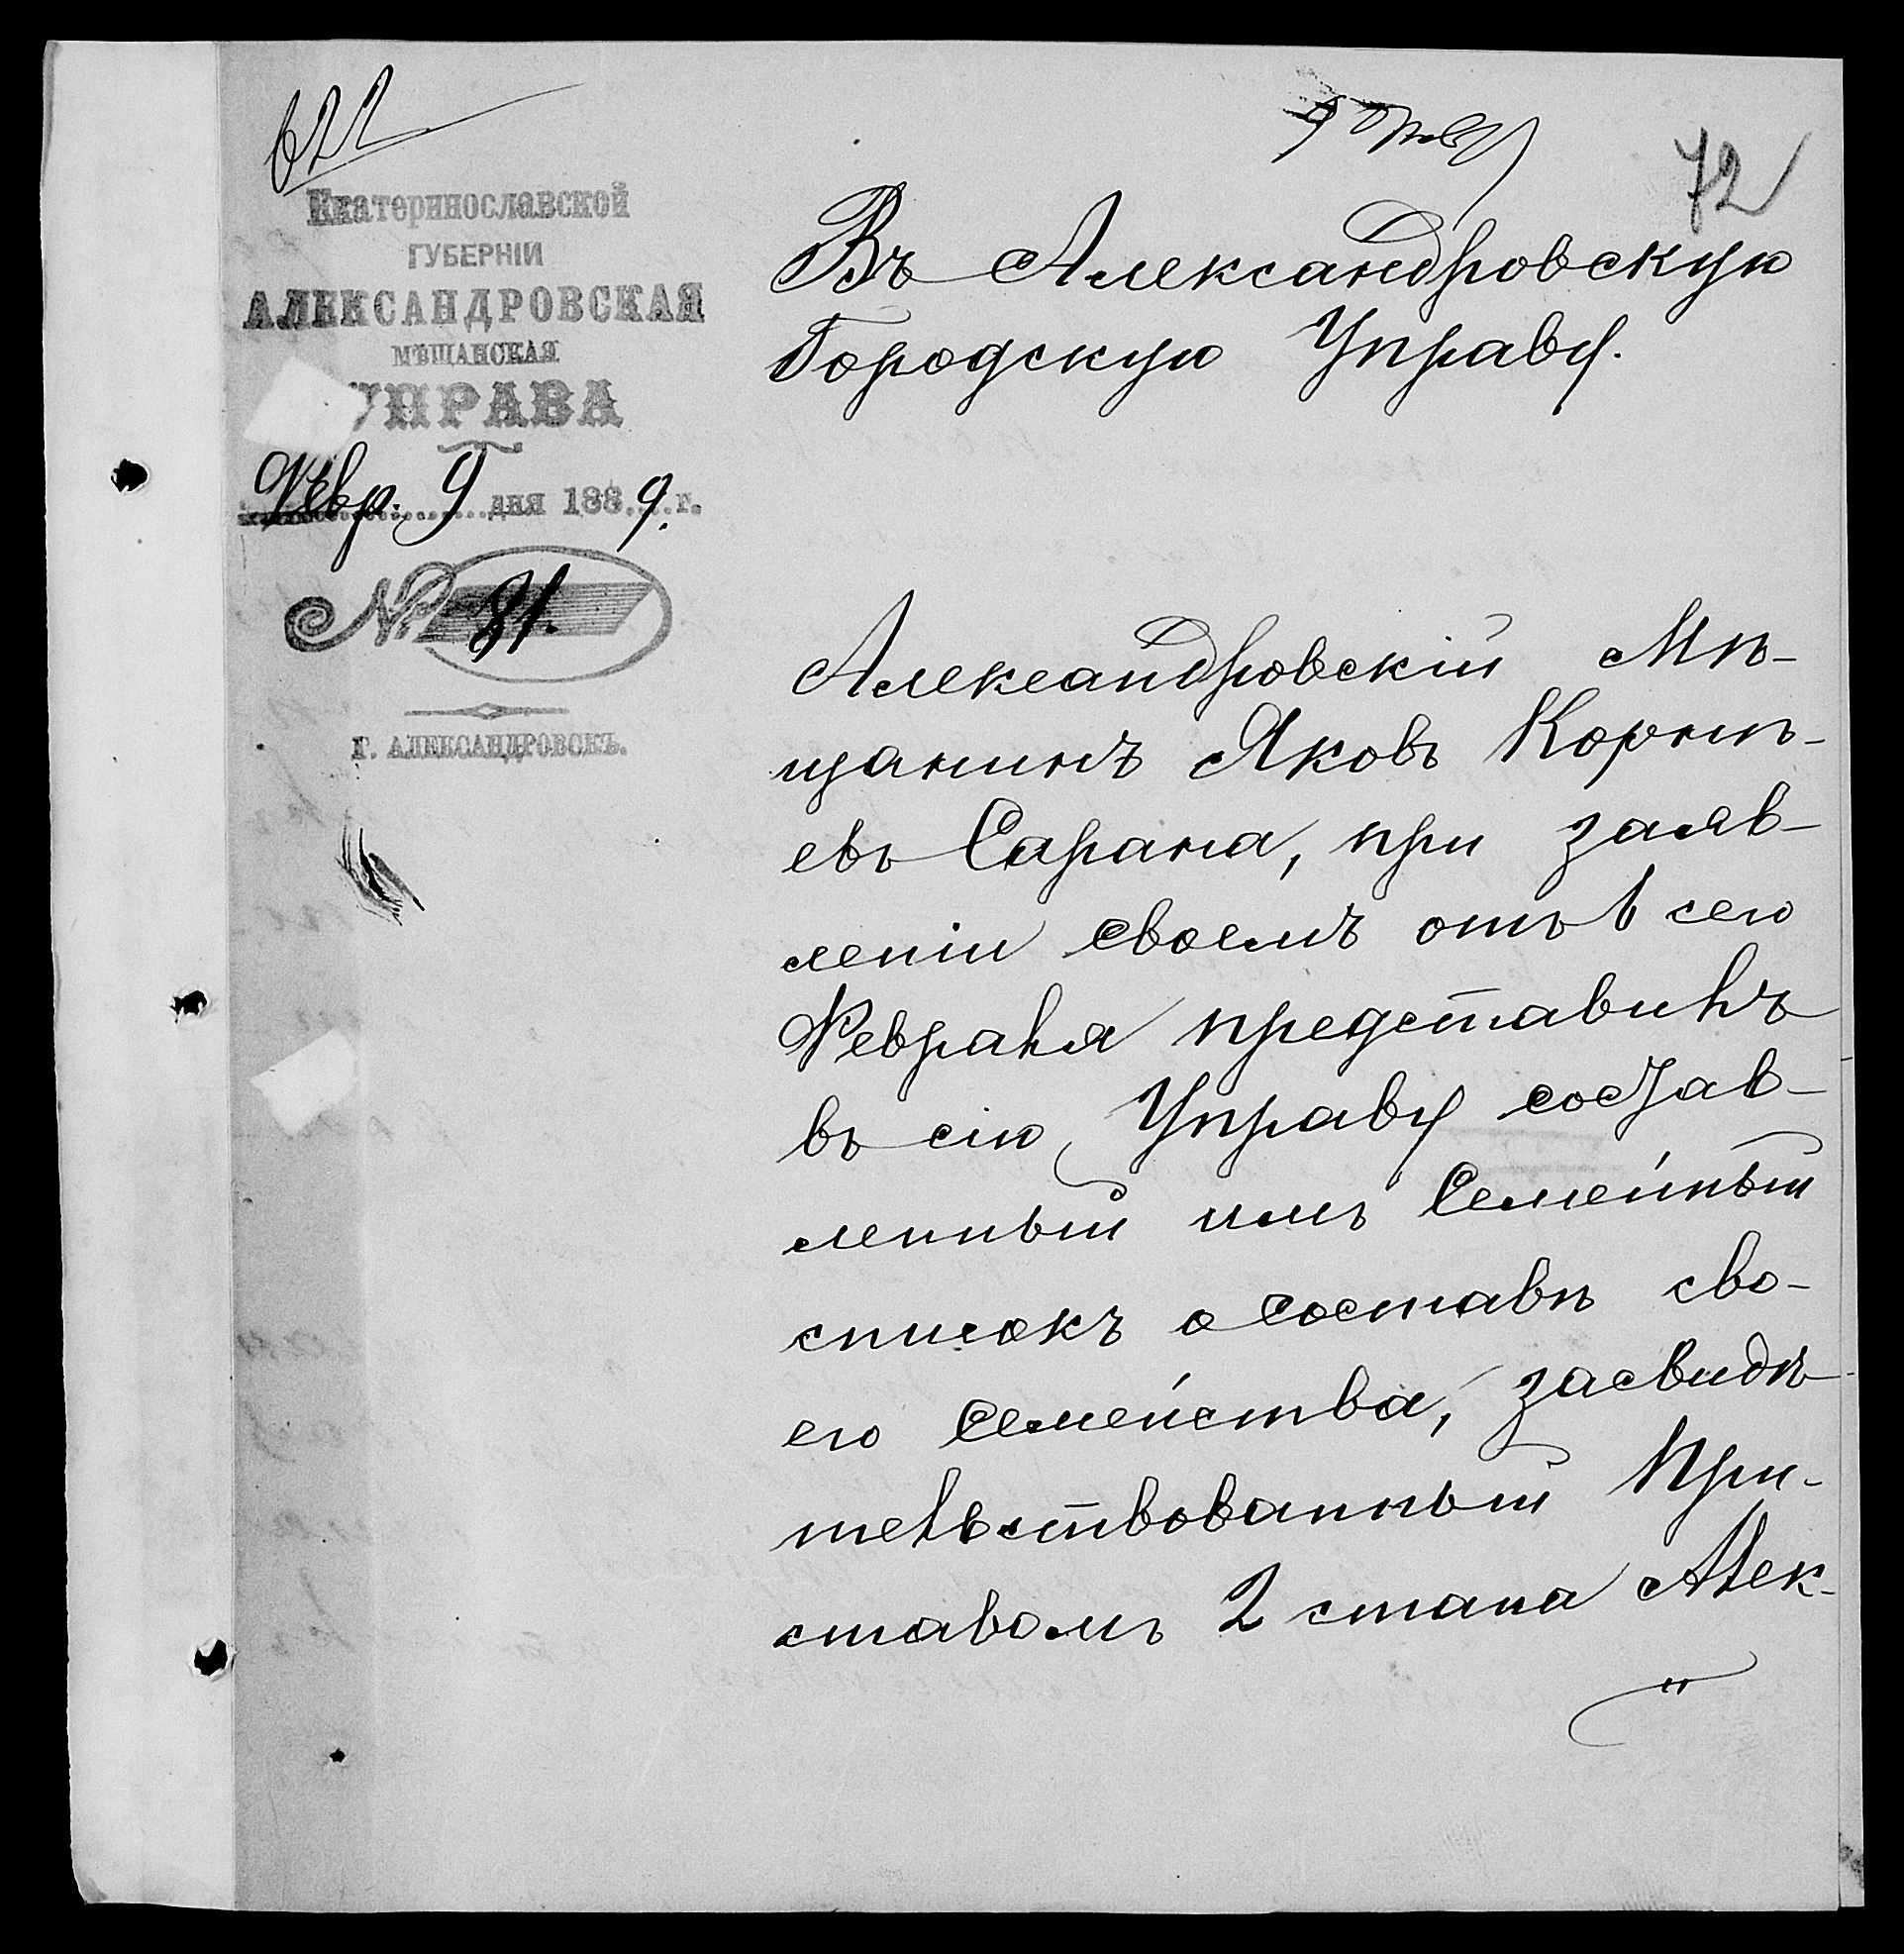 622
72
Екатеринославской
ГУБЕРНІИ
АЛЕКСАНДРОВСКАЯ
МѢЩАНСКАЯ
УПРАВА
Февр. 9 дня 1889 г.
№ 81.
Г. АЛЕКСАНДРОВСКЪ.
Въ Александровскую
Городскую Управу.
Александровскій Мѣ-
щанинъ Яковъ Корнѣ-
евъ Сарана, при заяв-
леніи своемъ отъ 1 сего
Февраля представилъ
въ сію Управу состав-
ленный имъ Семейный
списокъ о составѣ сво-
его семейства, засвидѣ-
тельствованный При-
ставомъ 2 стана Алек-